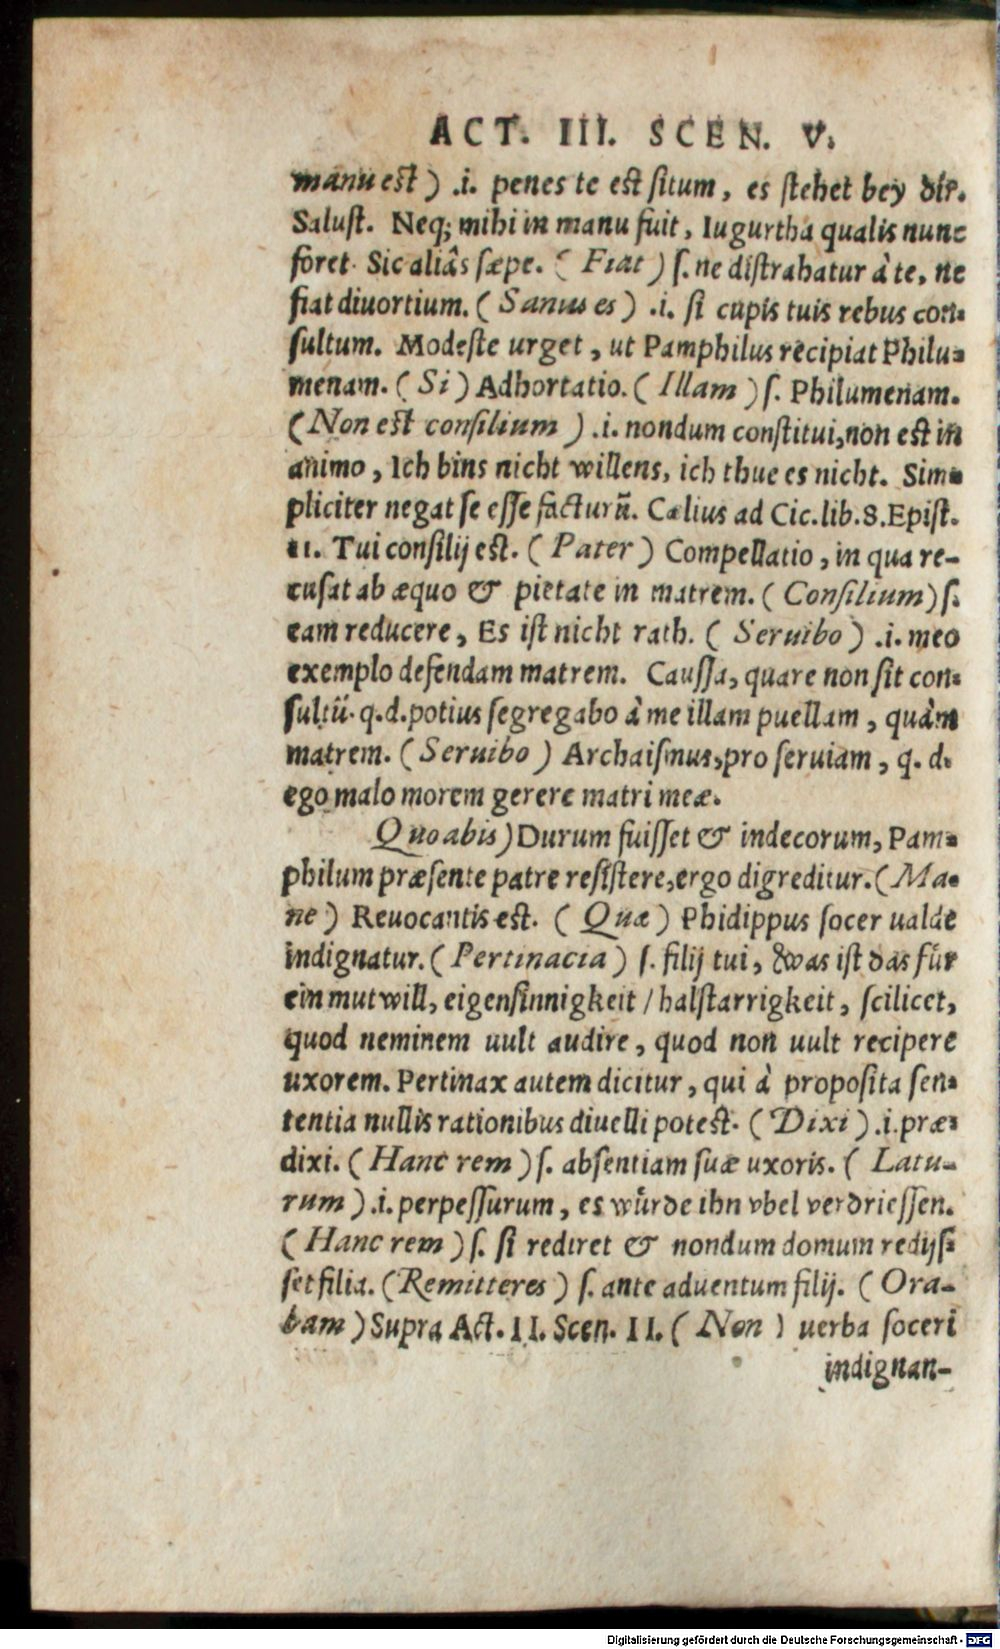 ACT. III. SCEN. V.
manu est) .i. penes te est situm, es stehet bey dir.
Salust. Neq; mihi in manu fuit, Iugurtha qualis nunc
foret. Sic aliâs sæpe. (Fiat) s. ne distrahatur à te, ne
fiat diuortium. (Sanus es) .i. si cupis tuis rebus con-
sultum. Modeste urget, ut Pamphilus recipiat Philu-
menam. (Si) Adhortatio. (Illam) s. Philumenam.
(Non est consilium) .i. nondum constitui, non est in
animo, Ich bins nicht willens, ich thue es nicht. Sim-
pliciter negat se esse facturũ. Cælius ad Cic. lib. 8. Epist.
11. Tui consilij est. (Pater) Compellatio, in qua re-
cusat ab æquo & pietate in matrem. (Consilium) s.
eam reducere, Es ist nicht rath. (Seruibo) .i. meo
exemplo defendam matrem. Caussa, quare non sit con-
sultũ. q.d. potius segregabo à me illam puellam, quàm
matrem. (Seruibo) Archaismus, pro seruiam, q. d.
ego malo morem gerere matri meæ.
Quo abis) Durum fuisset & indecorum, Pam-
philum præsente patre resistere, ergo digreditur. (Ma-
ne) Reuocantis est. (Quæ) Phidippus socer ualde
indignatur. (Pertinacia) s. filij tui, Was ist das für
ein mutwill, eigensinnigkeit / halstarrigkeit, scilicet,
quod neminem uult audire, quod non uult recipere
uxorem. Pertinax autem dicitur, qui à proposita sen-
tentia nullis rationibus diuelli potest. (Dixi) .i. præ-
dixi. (Hanc rem) s. absentiam suæ uxoris. (Latu-
rum) .i. perpessurum, es würde ihn vbel verdriessen.
(Hanc rem) s. si rediret & nondum domum redijs-
set filia. (Remitteres) s. ante aduentum filij. (Ora-
bam) Supra Act. II. Scen. II. (Non) uerba soceri
indignan-
Digitalisierung gefördert durch die Deutsche Forschungsgemeinschaft - DFG